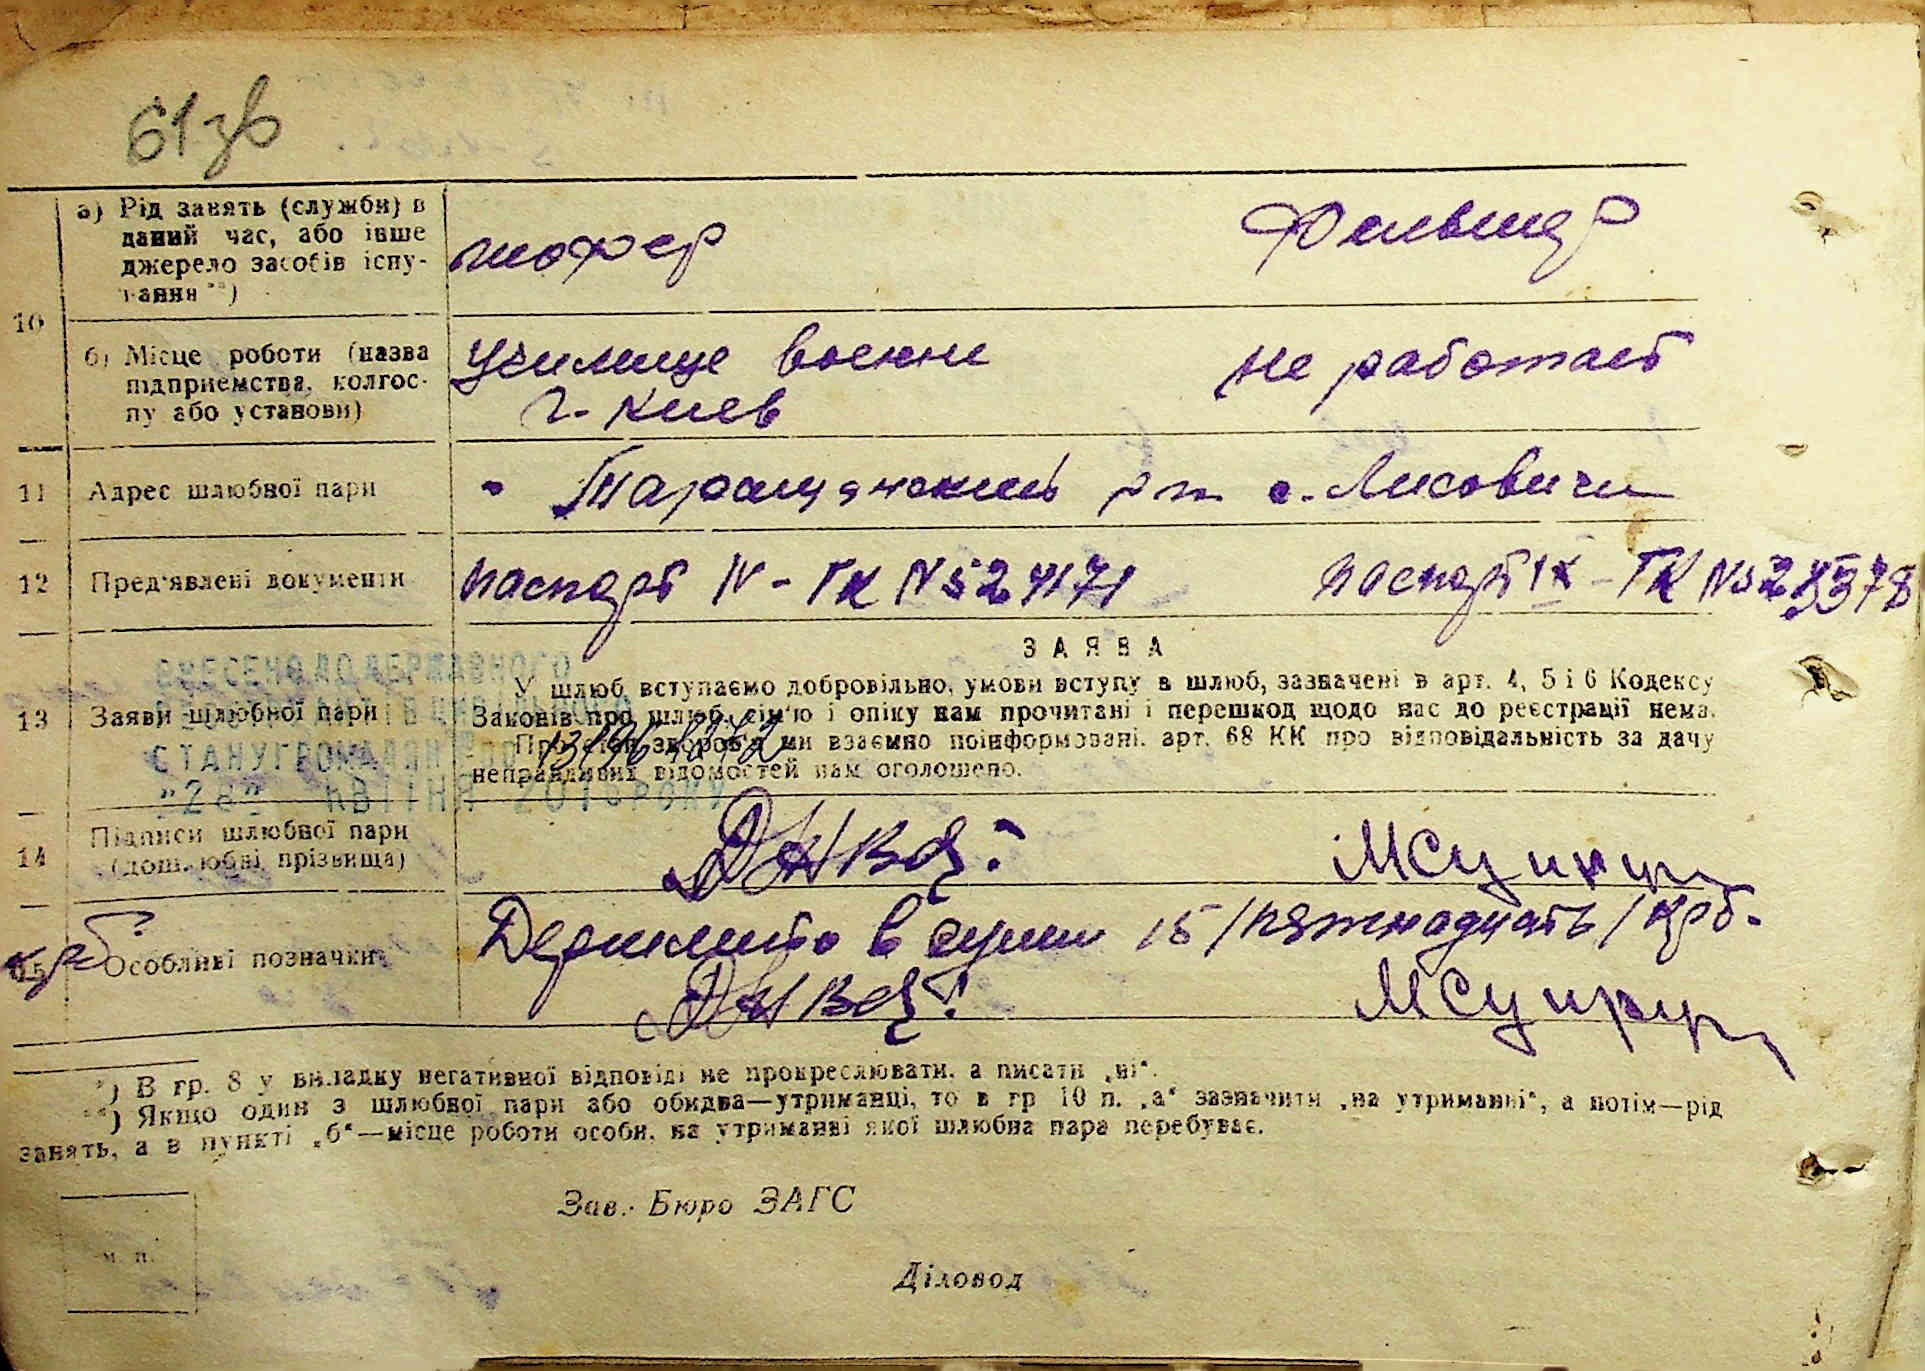 61зв
10
а) Рід занять (служби) в
даний час, або інше
джерело засобів існу-
вання **)
шофер
Фельшер
б) Місце роботи (назва
підприємства, колгос-
пу або установи)
Училище военне
г. Киев
не работает
11
Адрес шлюбної пари
р-н с. Лисовичи
12
Пред'явлені документи
паспорт IV - ГК № 524171
паспорт IX - ГК №
ВНЕСЕНО ДО ДЕРЖАВНОГО
СТАНУ ГРОМАДЯН
"28" КВІТНЯ 2016 РОКУ
13
Заяви шлюбної пари
ЗАЯВА
У шлюб вступаємо добровільно, умови вступу в шлюб, зазначені в арт. 4, 5 і 6 Кодексу
Законів про шлюб, сім'ю і опіку нам прочитані і перешкод щодо нас до реєстрації нема.
Про стан здоров'я ми взаємно поінформовані. арт. 68 КК про відповідальність за дачу
неправдивих відомостей нам оголошено.
14
Підписи шлюбної пари
(дошлюбні прізвища)
15
Особливі позначки
в сумі 15 /пятнадцать/ крб.
*) В гр. 8 у випадку негативної відповіді не прокреслювати, а писати „ні“.
**) Якщо один з шлюбної пари або обидва—утриманці, то в гр 10 п. „а“ зазначити „на утриманні“, а потім—рід
занять, а в пункті „б“—місце роботи особи, на утриманні якої шлюбна пара перебуває.
Зав. Бюро ЗАГС
м. п.
Діловод